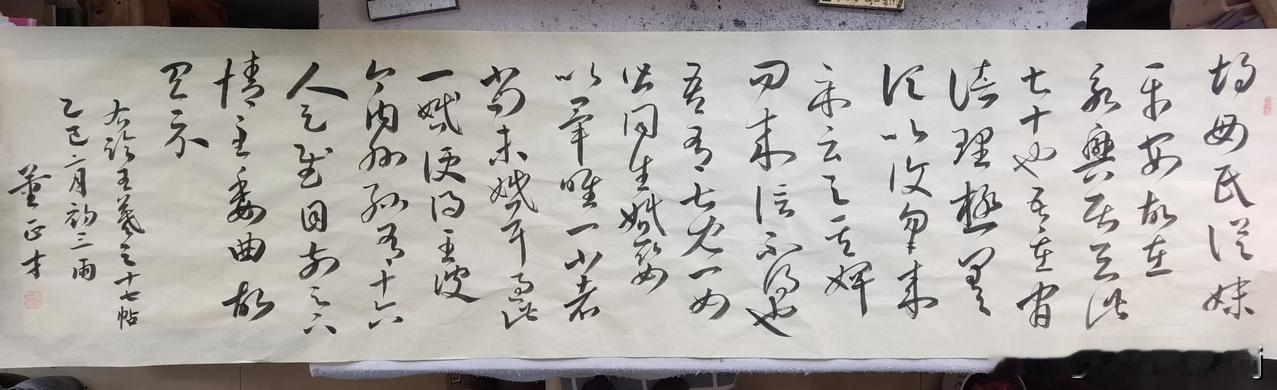 胡母氏從妹
平安故在
永興居去此
七十也吾在官
諸理極差
頃比復勿來
示云與其婢
問來信不得也
吾有七兒一女
皆同生婚娶
以畢唯一小者
尚未婚耳過此
一婚便得至彼
今内外孫有十六
人足慰目前足下
情至委曲故
具示
右臨王羲之十七帖
乙巳二月初三雨
董正才